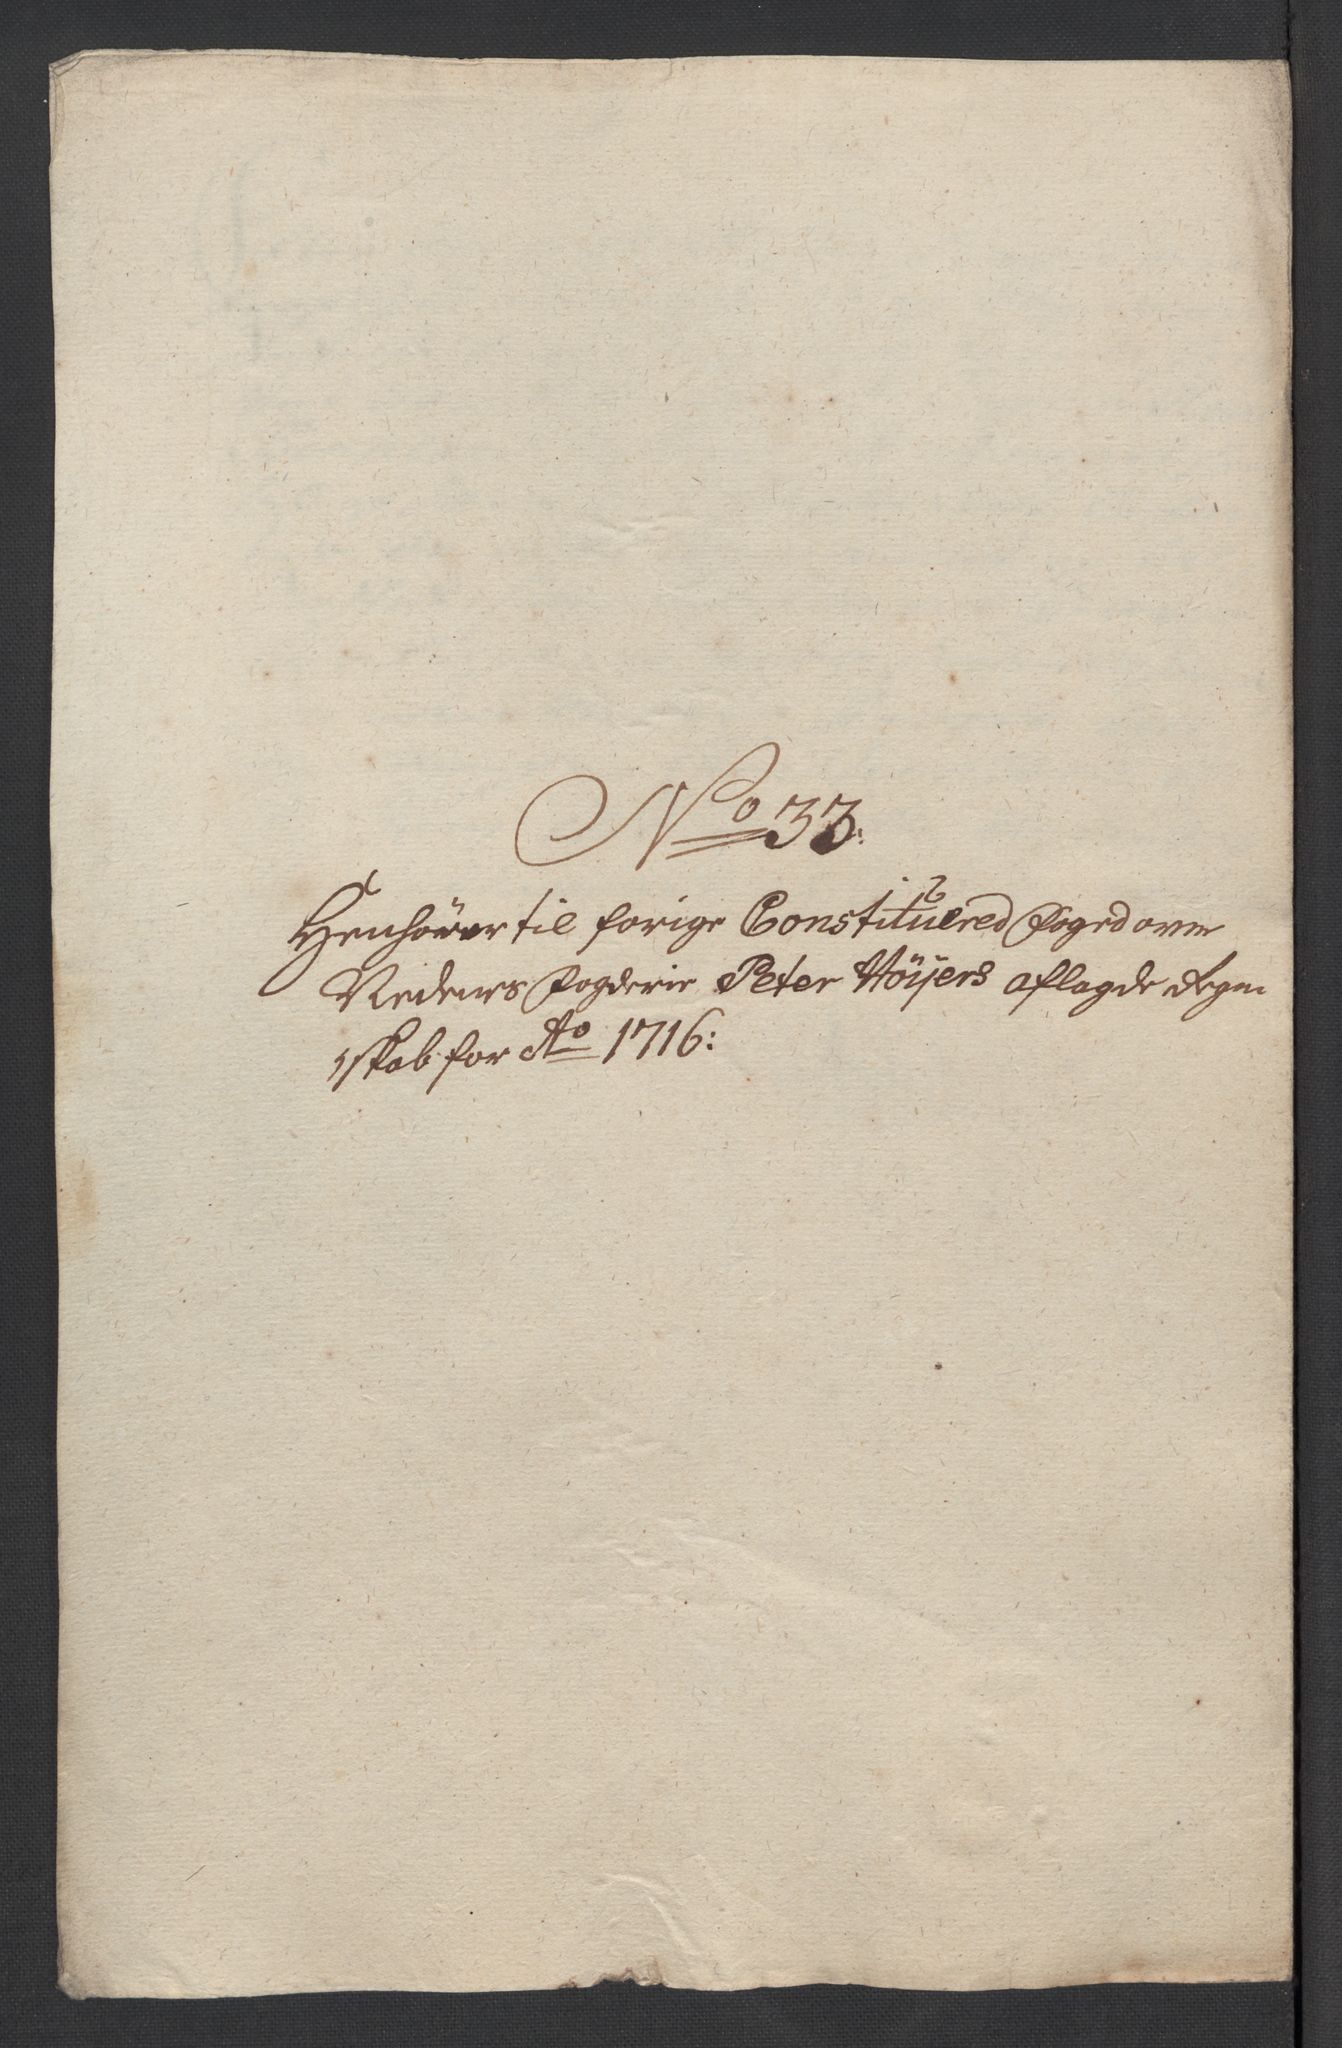 No 33:
Henhörer til forige Constituered Foged over
Nedenes Fogderie Peter Höÿers aflagde Regen
skab for Ao 1716: